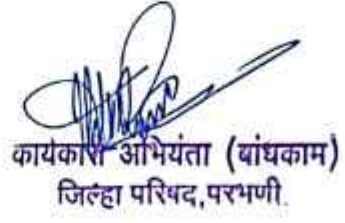 कार्यकारी अभियंता (बांधकाम)
जिल्हा परिषद,परभणी